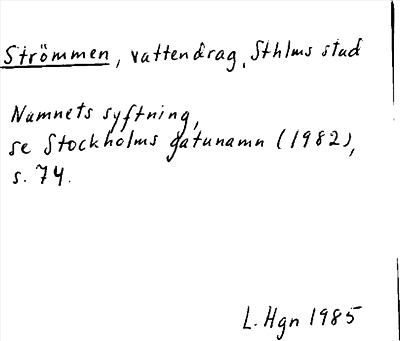 Strömmen, vattendrag, Sthlms stad
Namnets syftning,
se Stockholms gatunamn (1982),
s. 74.
L. Hgn 1985